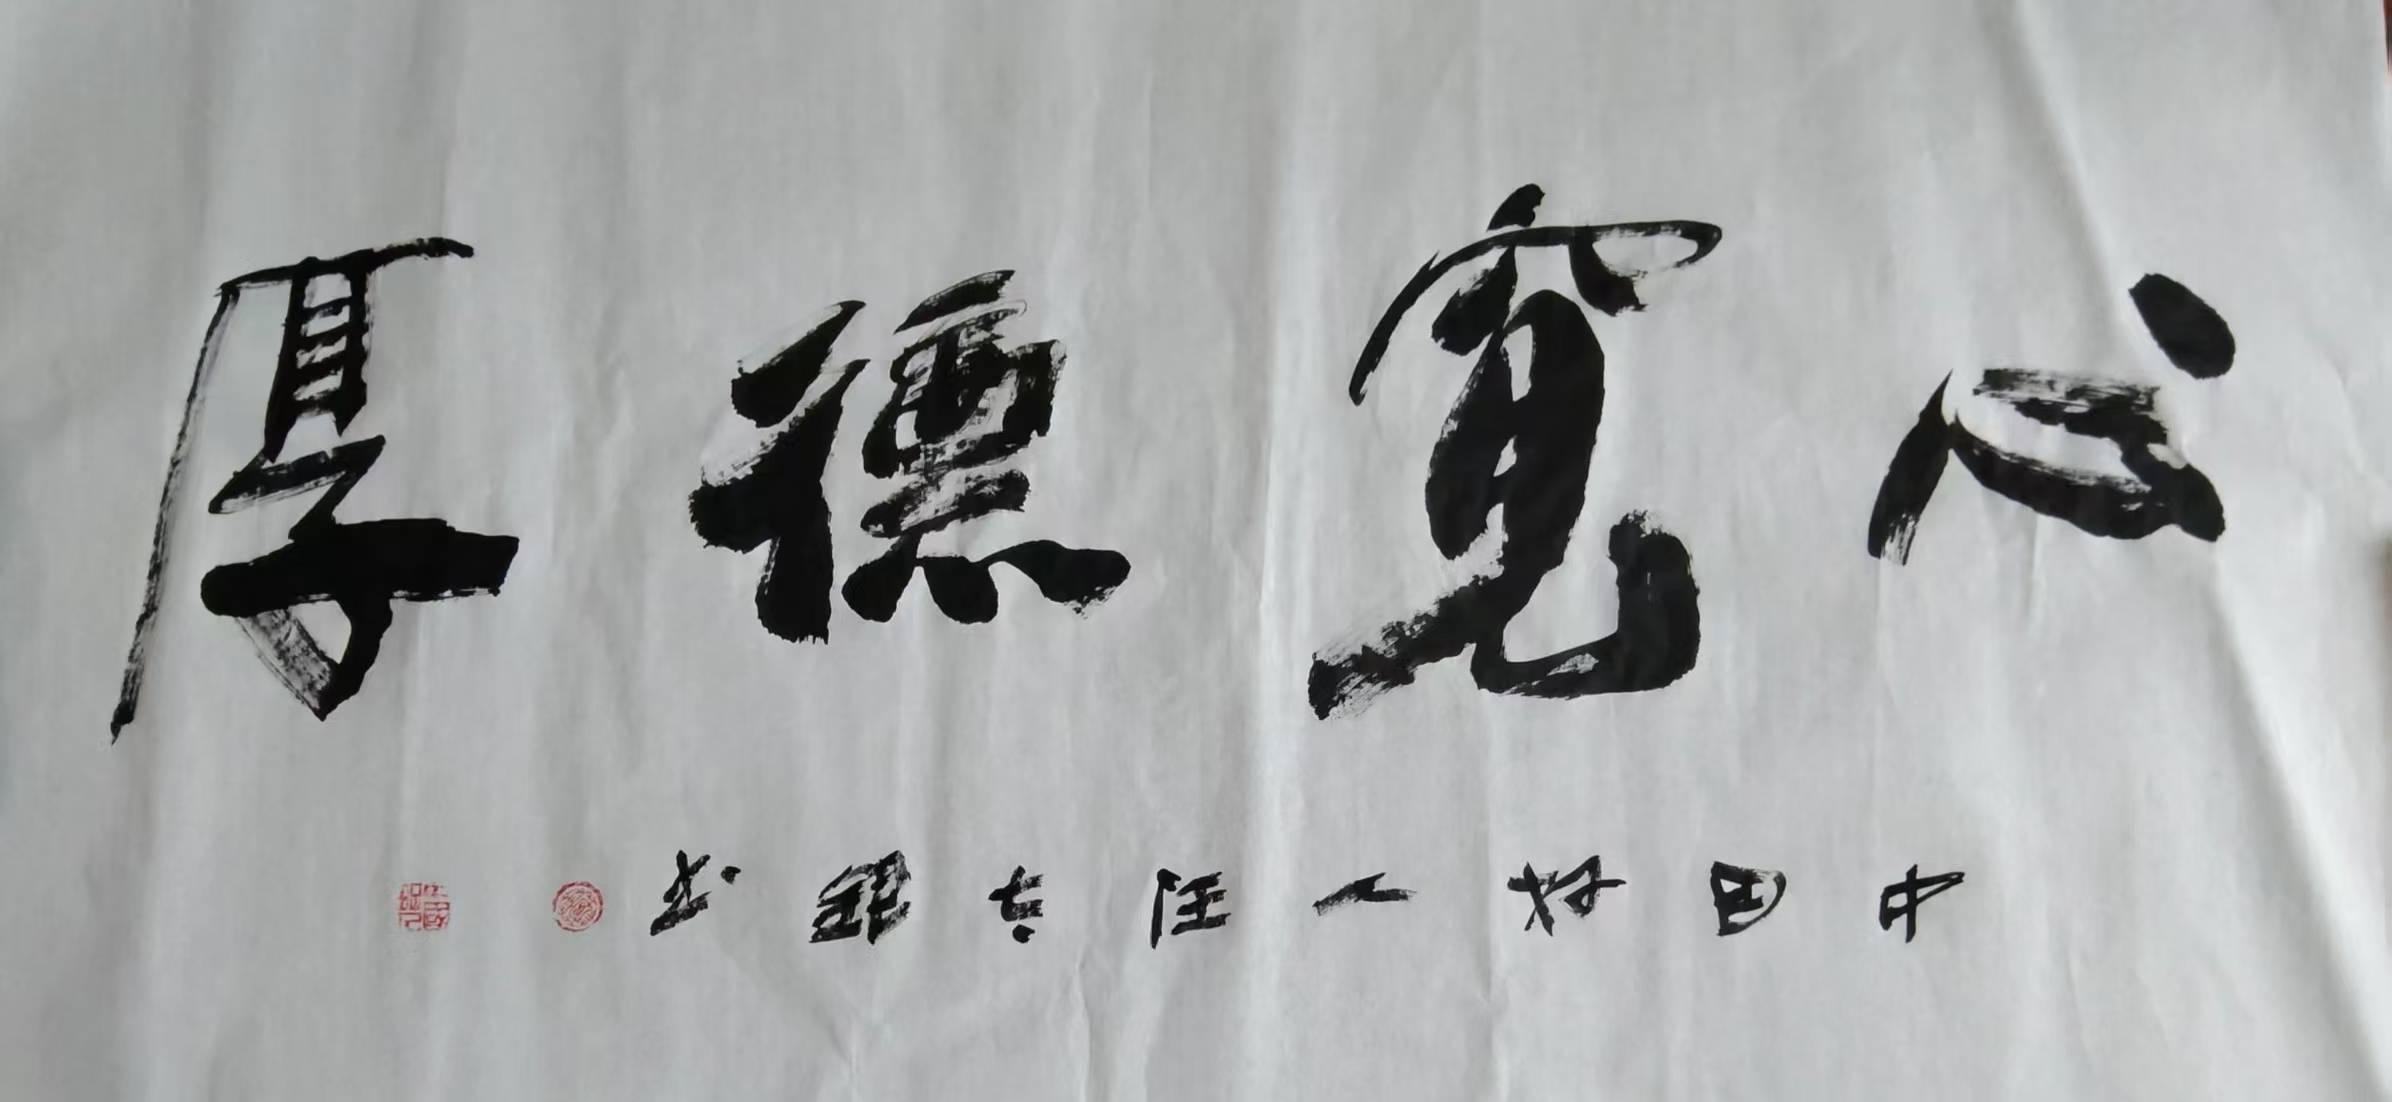 心寬德厚
中国好人汪银书